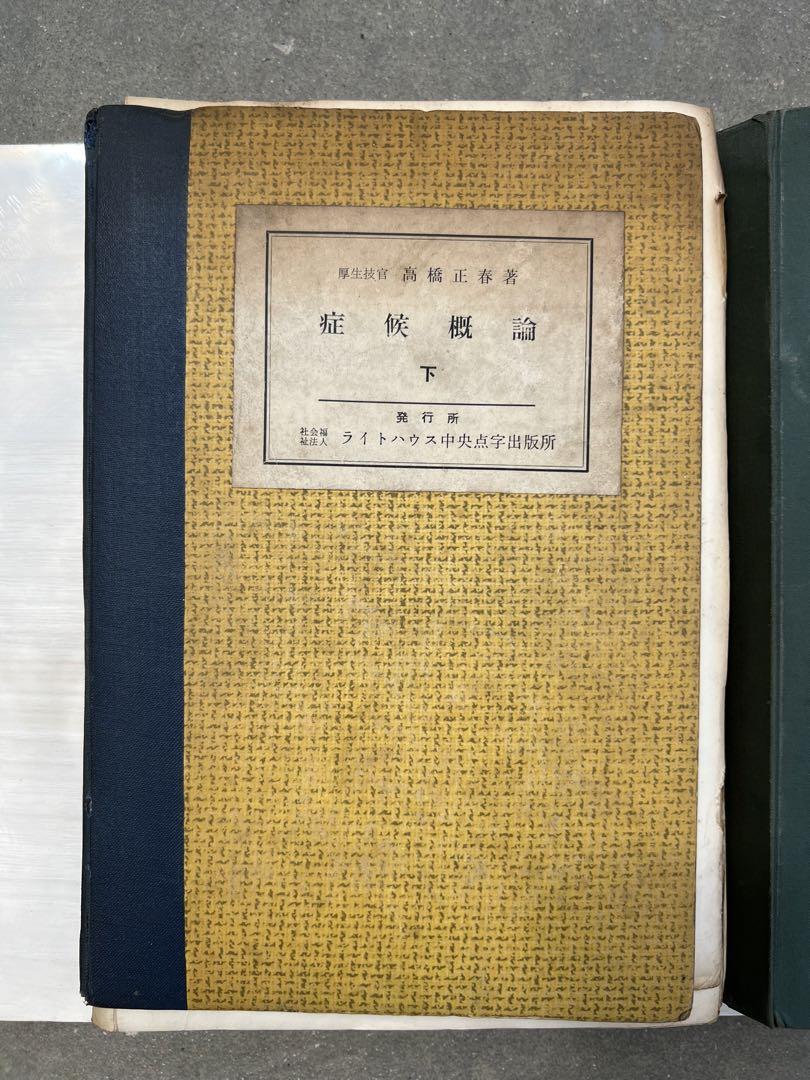 厚生技官 高橋正春著
症候概論
下
発行所
社会福祉法人 ライトハウス中央点字出版所